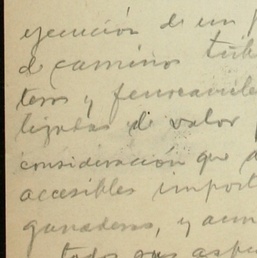 ejecución de un
de caminos
teros y ferrocarriles
ligadas de valor
consideración que a
accesibles import
ganaderas, y aun
todo sus aspe